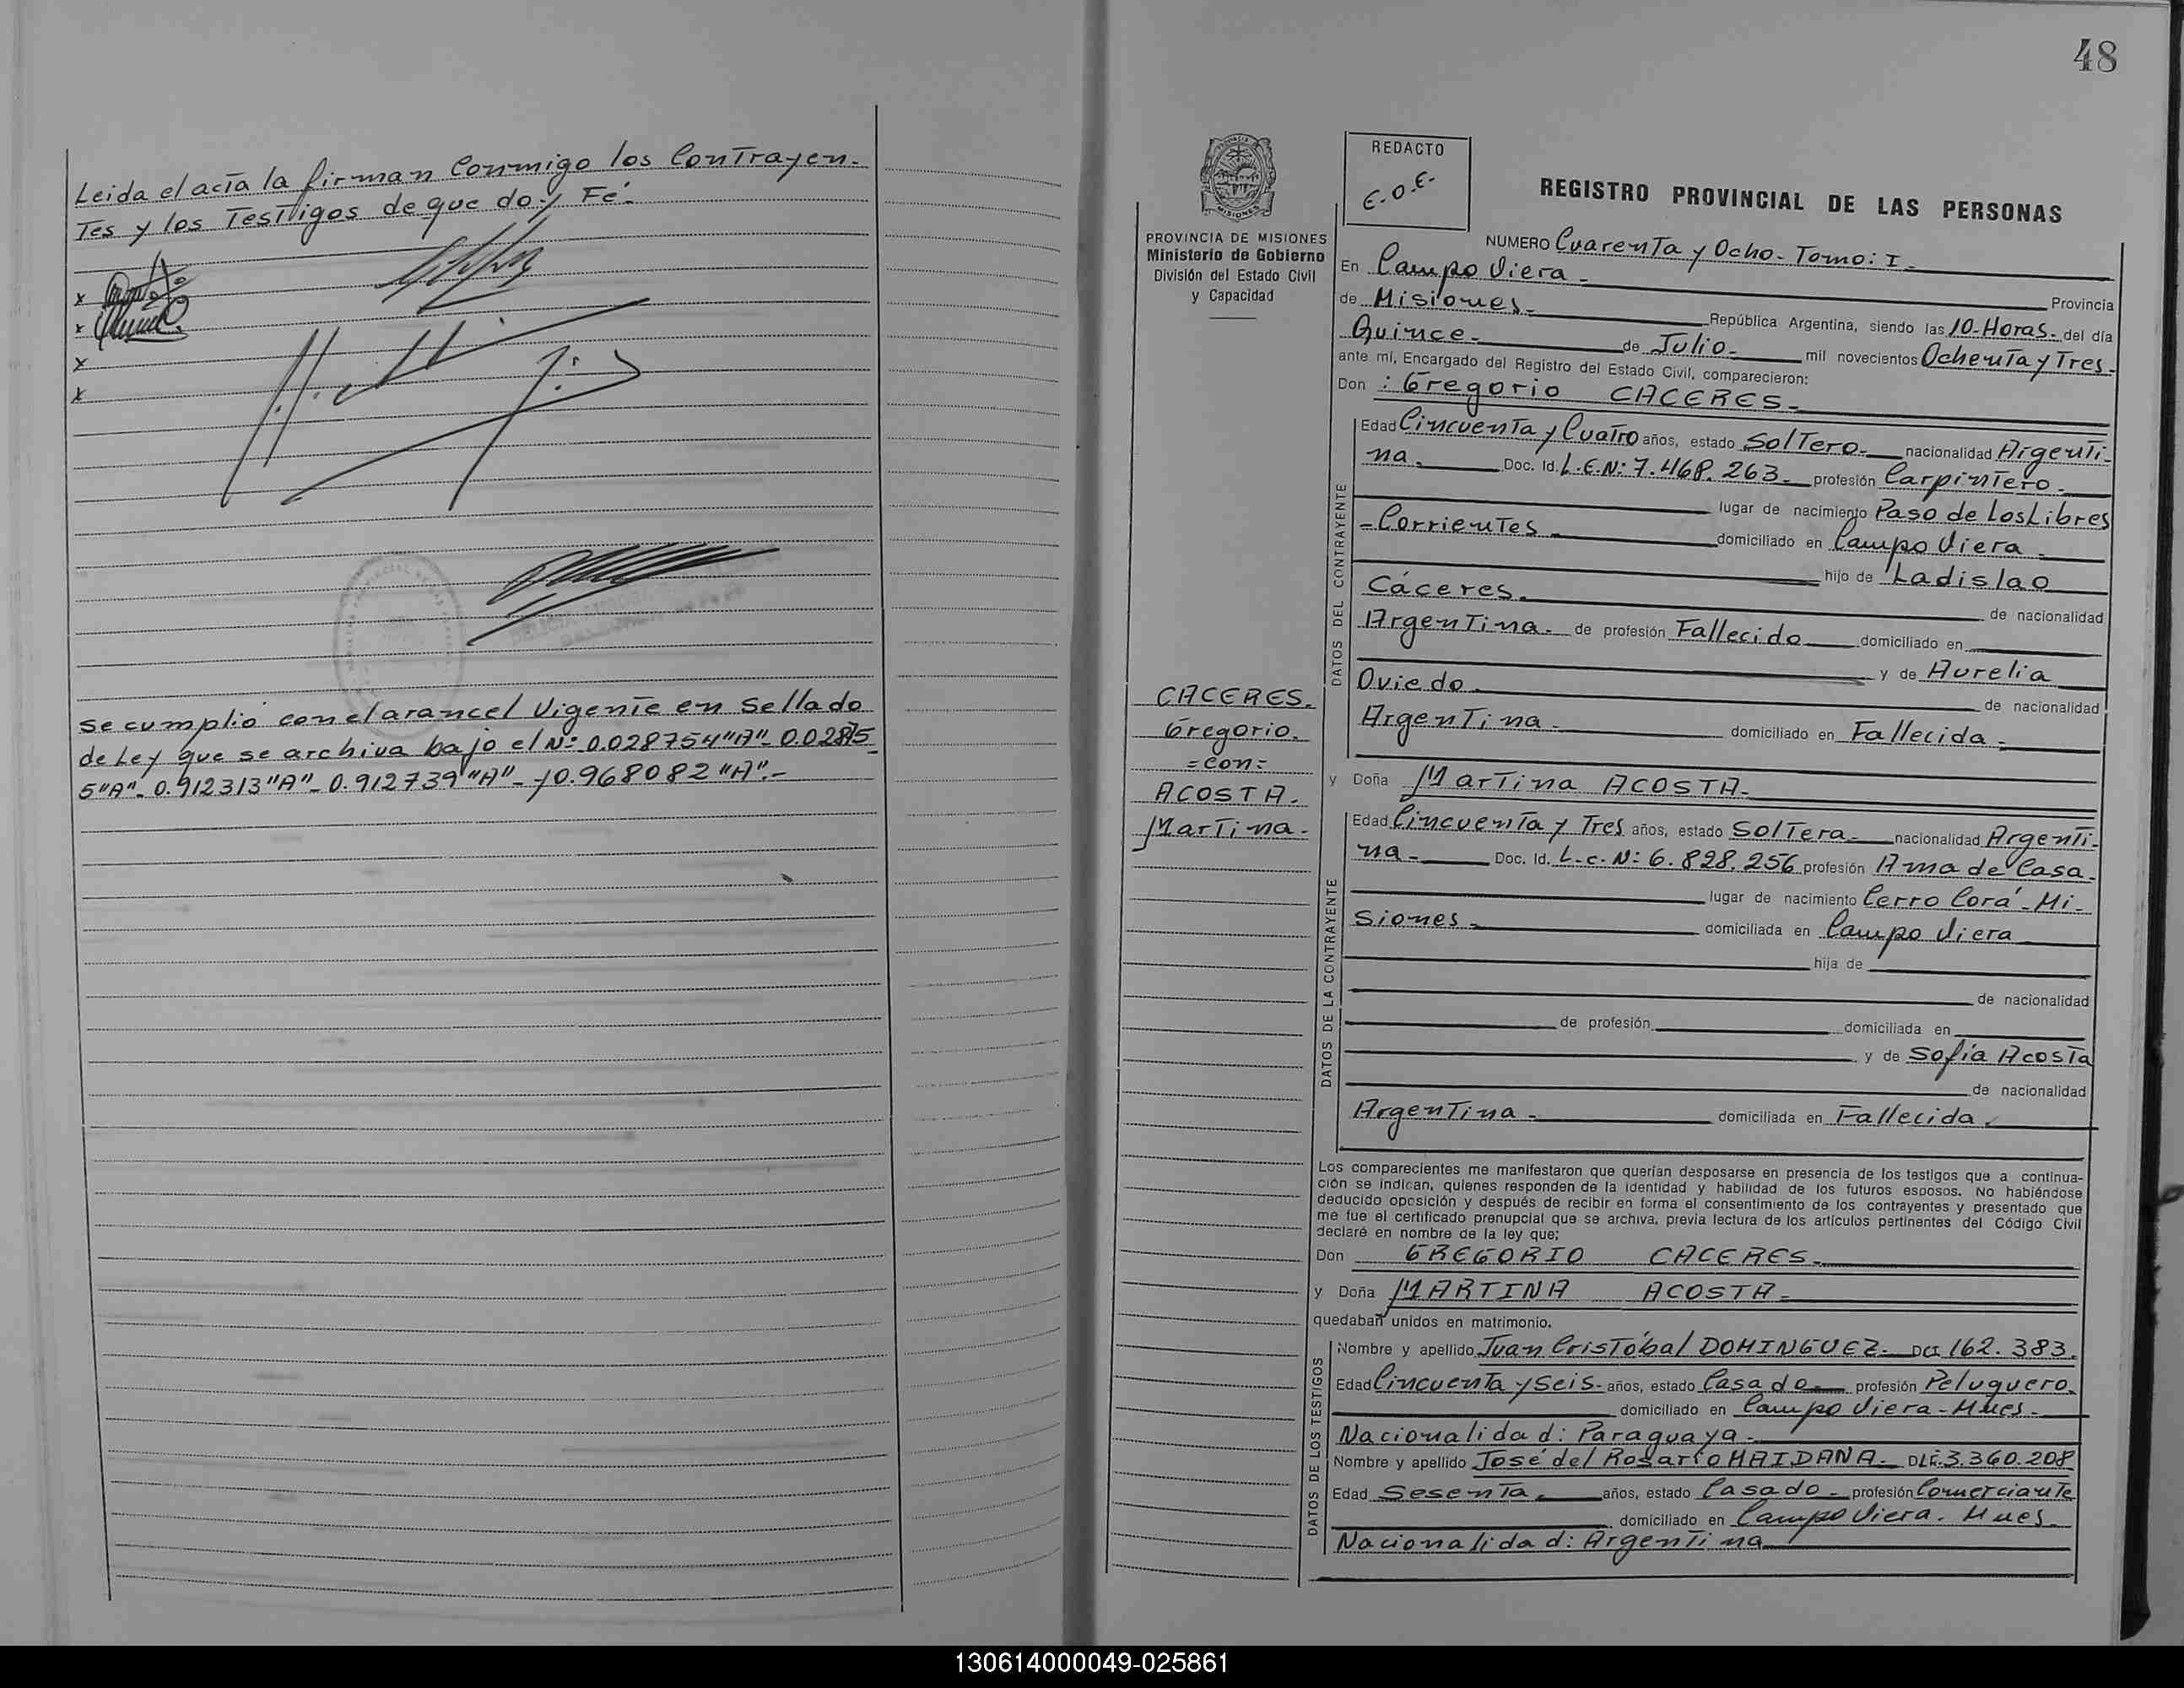 Leida el acta la firman Conmigo los Contrayen-
Tes y los Testigos de que doy Fé.
x
x
x
x
Se cumplió con el arancel Vigente en Sellado
de Ley que se archiva bajo el Nº 0.028754"A"- 0.02875
5"A"- 0.912313"A"- 0.912739"A"- y 0.968082"A".-
48
PROVINCIA DE MISIONES
Ministerio de Gobierno
División del Estado Civil
y Capacidad
CACERES.
Gregorio.
=con=
ACOSTA.
Martina.
REDACTO
E.O.E.
REGISTRO PROVINCIAL DE LAS PERSONAS
NUMERO Cuarenta y Ocho- Tomo: I-
En Campo Viera-
Provincia
de Misiones- República Argentina, siendo las 10-Horas- del día
Quince- de Julio- mil novecientos Ochenta y Tres-
ante mí, Encargado del Registro del Estado Civil, comparecieron:
Don : Gregorio CACERES-
DATOS DEL CONTRAYENTE
Edad Cincuenta y Cuatro años, estado Soltero- nacionalidad Argenti-
na- Doc. Id. L.E.N: 7.468.263- profesión Carpintero-
lugar de nacimiento Paso de Los Libres
-Corrientes domiciliado en Campo Viera-
hijo de Ladislao
Cáceres. de nacionalidad
Argentina- de profesión Fallecido domiciliado en
y de Aurelia
Oviedo de nacionalidad
Argentina- domiciliado en Fallecida-
y Doña Martina ACOSTA-
DATOS DE LA CONTRAYENTE
Edad Cincuenta y Tres años, estado Soltera- nacionalidad Argenti-
na- Doc. Id. L.c.N: 6.828.256 profesión Ama de Casa-
lugar de nacimiento Cerro Corá-Mi-
siones- domiciliada en Campo Viera
hija de
de nacionalidad
de profesión domiciliada en
y de Sofía Acosta
de nacionalidad
Argentina- domiciliada en Fallecida.
Los comparecientes me manifestaron que querían desposarse en presencia de los testigos que a continua-
ción se indican, quienes responden de la identidad y habilidad de los futuros esposos. No habiéndose
deducido oposición y después de recibir en forma el consentimiento de los contrayentes y presentado que
me fue el certificado prenupcial que se archiva, previa lectura de los artículos pertinentes del Código Civil
declaré en nombre de la ley que:
Don GREGORIO CACERES-
y Doña MARTINA ACOSTA-
quedaban unidos en matrimonio.
DATOS DE LOS TESTIGOS
Nombre y apellido Juan Cristóbal DOMINGUEZ- DCI 162.383.
Edad Cincuenta y Seis- años, estado Casado profesión Peluquero.
domiciliado en Campo Viera-Mnes-
Nacionalidad: Paraguaya-
Nombre y apellido José del Rosario MAIDANA- DLE:3.360.208
Edad Sesenta- años, estado Casado- profesión Comerciante
domiciliado en Campo Viera. Mnes-
Nacionalidad: Argentina
130614000049-025861